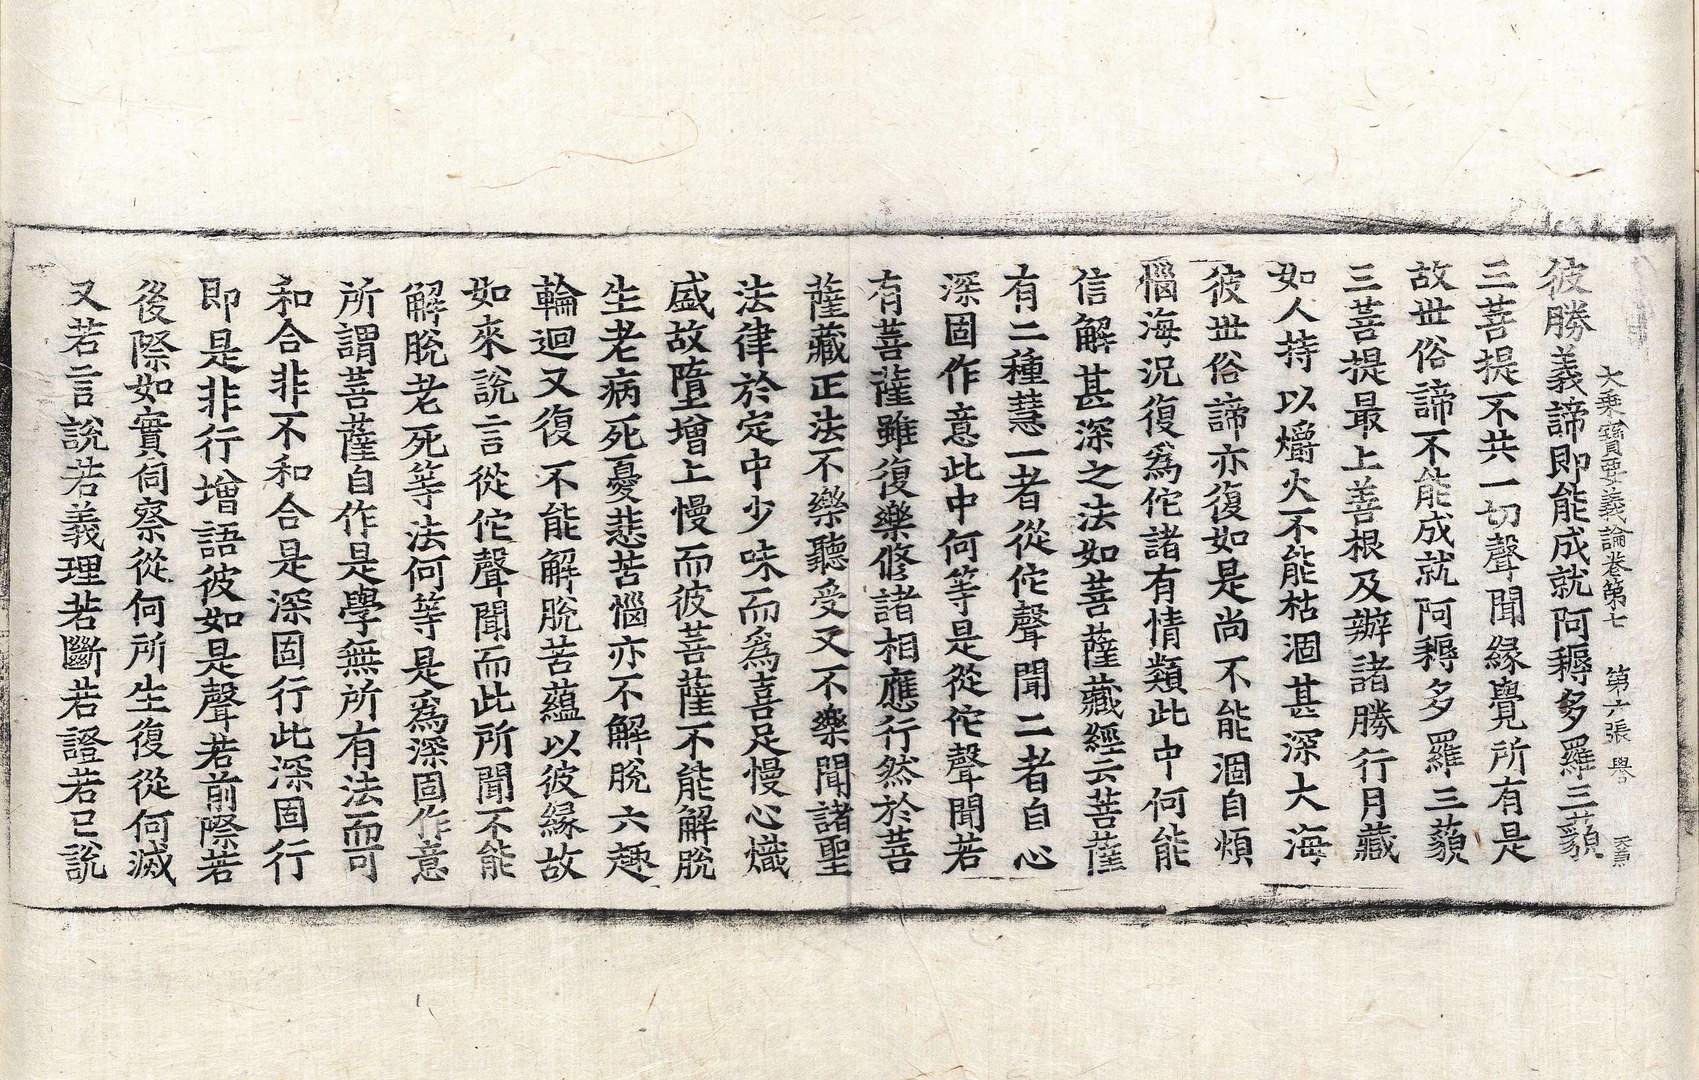 大乘寶要義論卷第七　第六張　譽
彼勝義諦即能成就阿耨多羅三藐
三菩提不共一切聲聞緣覺所有是
故世俗諦不能成就阿耨多羅三藐
三菩提最上善根及辦諸勝行月藏
如人持以爝火不能枯涸甚深大海
彼世俗諦亦復如是尚不能涸自煩
惱海況復爲佗諸有情類此中何能
信解甚深之法如菩薩藏經云菩薩
有二種慧一者從佗聲聞二者自心
深固作意此中何等是從佗聲聞若
有菩薩雖復樂修諸相應行然於菩
薩藏正法不樂聽受又不樂聞諸聖
法律於定中少味而爲喜足慢心熾
盛故墮增上慢而彼菩薩不能解脫
生老病死憂悲苦惱亦不解脫六趣
輪迴又復不能解脫苦蘊以彼緣故
如來說言從佗聲聞而此所聞不能
解脫老死等法何等是爲深固作意
所謂菩薩自作是學無所有法而可
和合非不和合是深固行此深固行
即是非行增語彼如是聲若前際若
後際如實伺察從何所生復從何滅
又若言說若義理若斷若證若已說